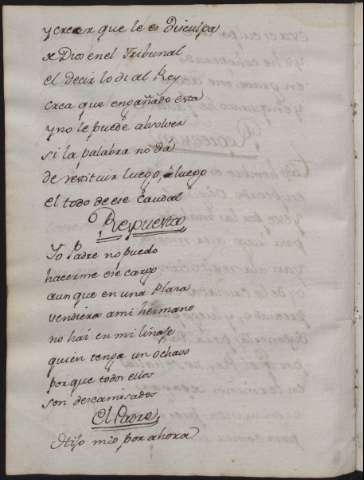 y creer que le es disculpa
a Dios en el Tribunal
el decir lo di al Rey
crea que engañado esta
y no le puede absolver
si la palabra no dá
de restituir luego, luego
el todo de ese caudal
Respuesta
Yo Padre no puedo
hacerme ese cargo
aunque en una Plaza
vendiera a mi hermano
no hai en mi linaje
quien tenga un ochavo
porque todos ellos
son descamisados
El Padre
Hijo mio por ahora